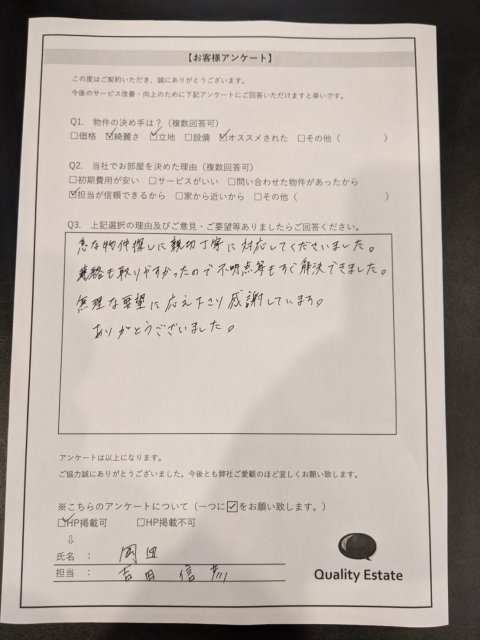 【お客様アンケート】
この度はご契約いただき、誠にありがとうございます。
今後のサービス改善・向上のために下記アンケートにご回答いただけますと幸いです。
Q1. 物件の決め手は？（複数回答可）
□価格 ☑綺麗さ ☑立地 □設備 ☑オススメされた □その他（ ）
Q2. 当社でお部屋を決めた理由（複数回答可）
□初期費用が安い □サービスがいい □問い合わせた物件があったから
☑担当が信頼できるから □家から近いから □その他（ ）
Q3. 上記選択の理由及びご意見・ご要望等ありましたらご回答ください。
急な物件探しに親切丁寧に対応してくださいました。
連絡も取りやすかったので不明点等もすぐ解決できました。
無理な要望に応え下さり感謝しています。
ありがとうございました。
アンケートは以上になります。
ご協力誠にありがとうございました。今後とも弊社ご愛顧のほど宜しくお願い致します。
※こちらのアンケートについて（一つに☑をお願い致します。）
☑HP掲載可 □HP掲載不可
⇩
氏名 ： 岡田
担当 ： 吉田 信
Quality Estate